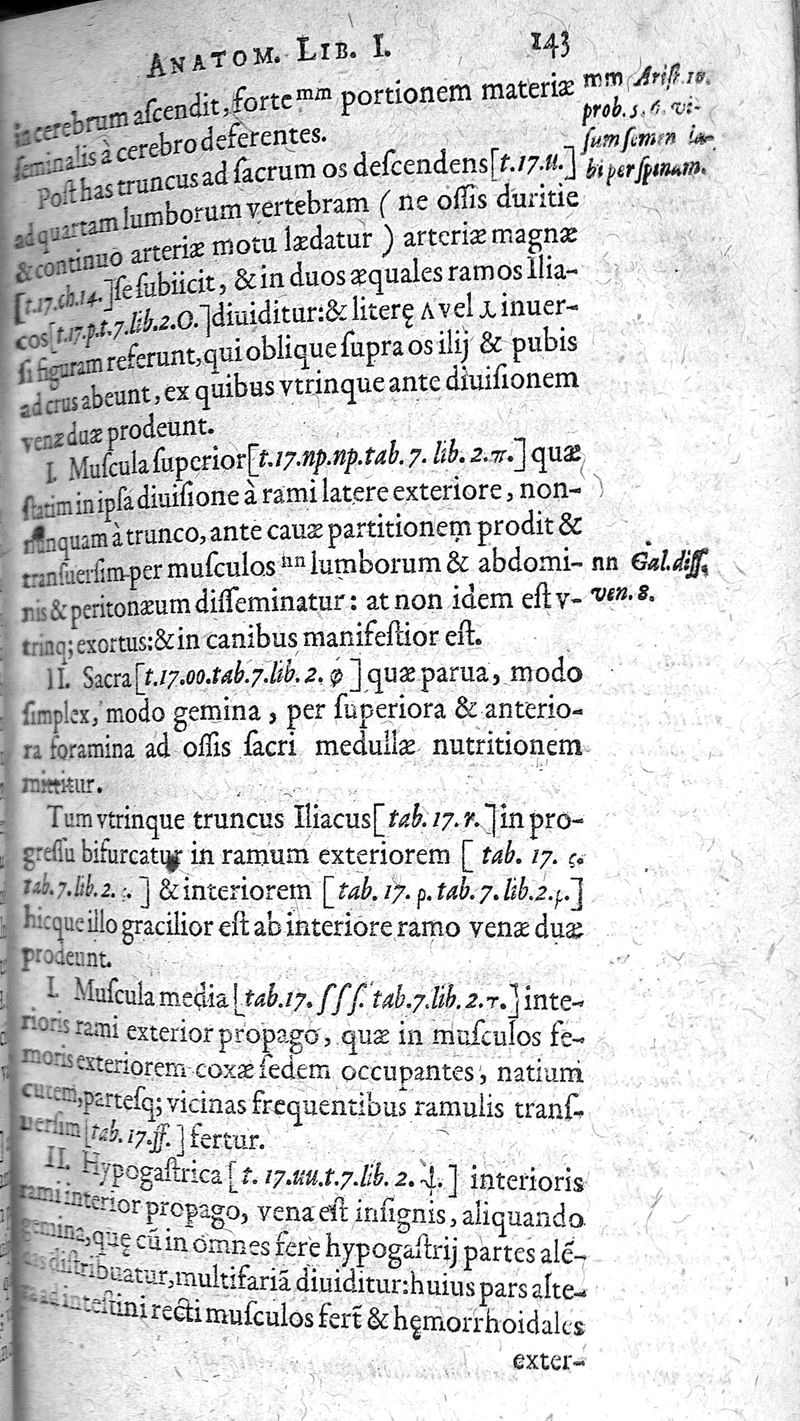 ANATOM. LIB. I. 143
in cerebrum aſcendit, forte mm portionem materiæ
ſeminalis à cerebro deferentes.
mm Ariſt. 10.
prob. s. 6. vi-
ſum ſemen la-
bi per ſpinam.
Poſt has truncus ad ſacrum os deſcendens [t.17.u.]
ad quartam lumborum vertebram ( ne oſſis duritie
& continuo arteriæ motu lædatur ) arteriæ magnæ
[t.17.ch.14.] ſe ſubiicit, & in duos æquales ramos Ilia-
cos [t.17.p.t.7.lib.2.O.] diuiditur: & literę ʌ vel ⅄ inuer-
ſi figuram referunt, qui oblique ſupra os ilij & pubis
ad crus abeunt, ex quibus vtrinque ante diuiſionem
venæ duæ prodeunt.
I. Muſcula ſuperior [t.17.np.np.tab.7. lib. 2.π.] quæ
ſtatim in ipſa diuiſione à rami latere exteriore, non-
nunquam à trunco, ante cauæ partitionem prodit &
tranſuerſim per muſculos nn lumborum & abdomi-
nis & peritonæum diſſeminatur: at non idem eſt v-
trinq; exortus: & in canibus manifeſtior eſt.
nn Gal. diſſ.
ven. 8.
II. Sacra [t.17.oo.tab.7.lib. 2. φ ] quæ parua, modo
ſimplex, modo gemina, per ſuperiora & anterio-
ra foramina ad oſſis ſacri medullæ nutritionem
mittitur.
Tum vtrinque truncus Iliacus [ tab. 17. r. ] in pro-
greſſu bifurcatur in ramum exteriorem [ tab. 17. ς.
tab.7.lib.2. ] & interiorem [ tab. 17. p. tab. 7. lib.2.ρ.]
hicque illo gracilior eſt ab interiore ramo venæ duæ
prodeunt.
I. Muſcula media [tab.17. ſſſ. tab.7.lib. 2.τ.] inte-
rioris rami exterior propago, quæ in muſculos fe-
moris exteriorem coxæ ſedem occupantes, natium
cutem, parteſq; vicinas frequentibus ramulis tranſ-
uerſim [tab. 17.ſſ. ] fertur.
II. Hypogaſtrica [ t. 17.uu.t.7.lib. 2. ] interioris
rami interior propago, vena eſt inſignis, aliquando
gemina, quę cū in omnes fere hypogaſtrij partes alē-
das diſtribuatur, multifariā diuiditur: huius pars alte-
ra ad inteſtini recti muſculos fert̄ & hęmorrhoidales
exter-